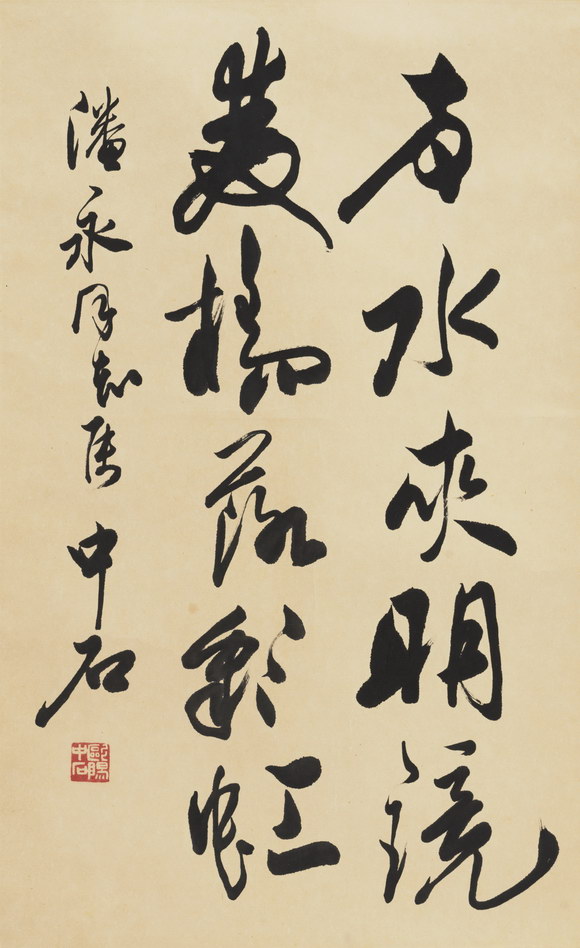 两水夾明鏡
雙橋落彩虹
潘永同志属 中石
歐陽中石